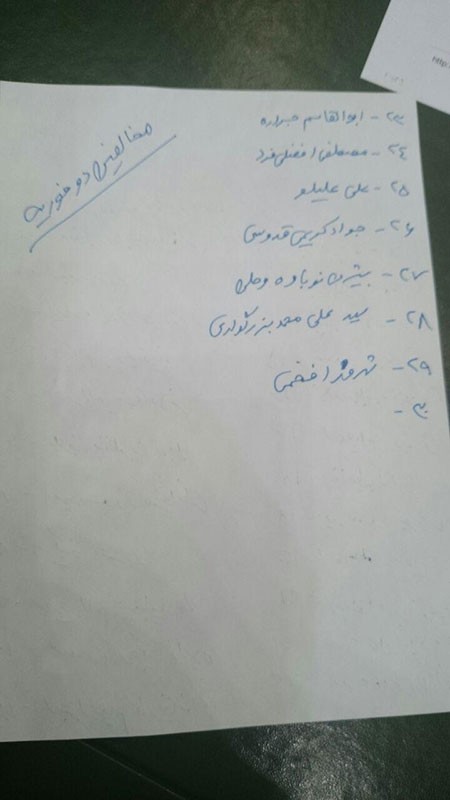 مخالفین دو فوریه
۲۳- ابوالقاسم جراره
۲۴- مصطفی افضلی فرد
۲۵- علی علیلو
۲۶- جواد کریمی قدوسی
۲۷- بیژن نوباوه وطن
۲۸- سید علی محمد بزرگواری
۲۹- شهروز افخمی
۳۰-